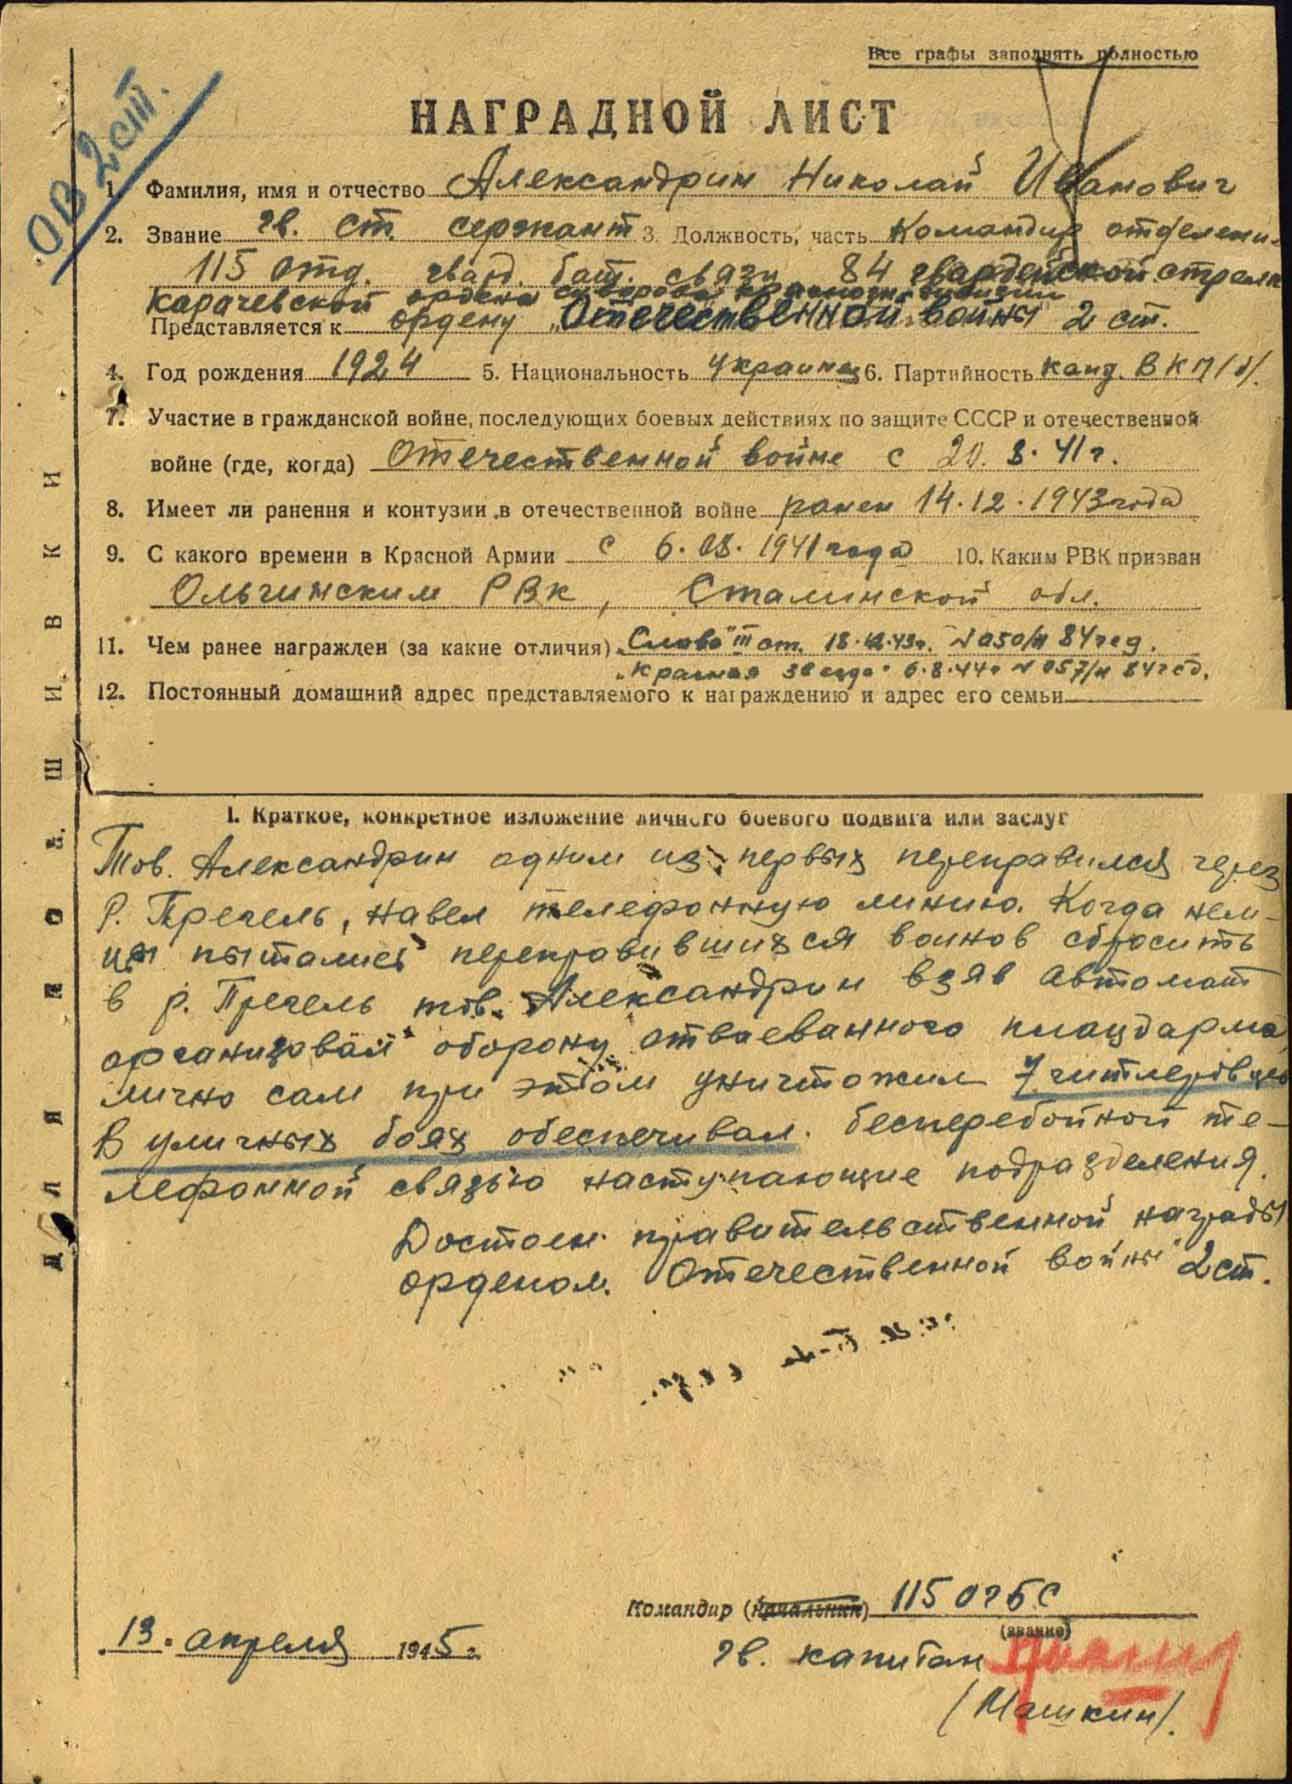 Все графы заполнять полностью
ОВ 2 ст.
НАГРАДНОЙ ЛИСТ
1. Фамилия, имя и отчество Александрин Николай Иванович
2. Звание гв. ст. сержант 3. Должность, часть Командир отделени-
115 отд. гвард. бат. связи 84 гвардейской стрелк
Карачевской ордена Суворова краснозн. дивизии
Представляется к ордену "Отечественной войны" 2 ст.
4. Год рождения 1924 5. Национальность Украинец 6. Партийность канд. ВКП/б/.
7. Участие в гражданской войне, последующих боевых действиях по защите СССР и отечественной
войне (где, когда) Отечественной войне с 20.8.41 г.
8. Имеет ли ранения и контузии в отечественной войне ранен 14.12.1943 года
9. С какого времени в Красной Армии с 6.08.1941 года 10. Каким РВК призван
Ольгинским РВК, Сталинской обл.
11. Чем ранее награжден (за какие отличия) "Слава" III ст. 18.12.43г. N 050/н 84 гсд.
"Красная звезда" 6.8.44г N 057/н 84 гсд.
12. Постоянный домашний адрес представляемого к награждению и адрес его семьи
ДЛЯ ПОДШИВКИ
I. Краткое, конкретное изложение личного боевого подвига или заслуг
Тов. Александрин одним из первых переправился через
р. Прегель, навел телефонную линию. Когда нем-
цы пытались переправившихся воинов сбросить
в р. Прегель тов. Александрин взяв автомат
организовал оборону отвоеванного плацдарма,
лично сам при этом уничтожил 7 гитлеровцев
В уличных боях обеспечивал бесперебойной те-
лефонной связью наступающие подразделения.
Достоен правительственной награды
орденом "Отечественной войны" 2 ст.
Командир (начальник) 115 ОГБС
(звание)
13. апреля 1945 г.
гв. капитан
/Машкин/.